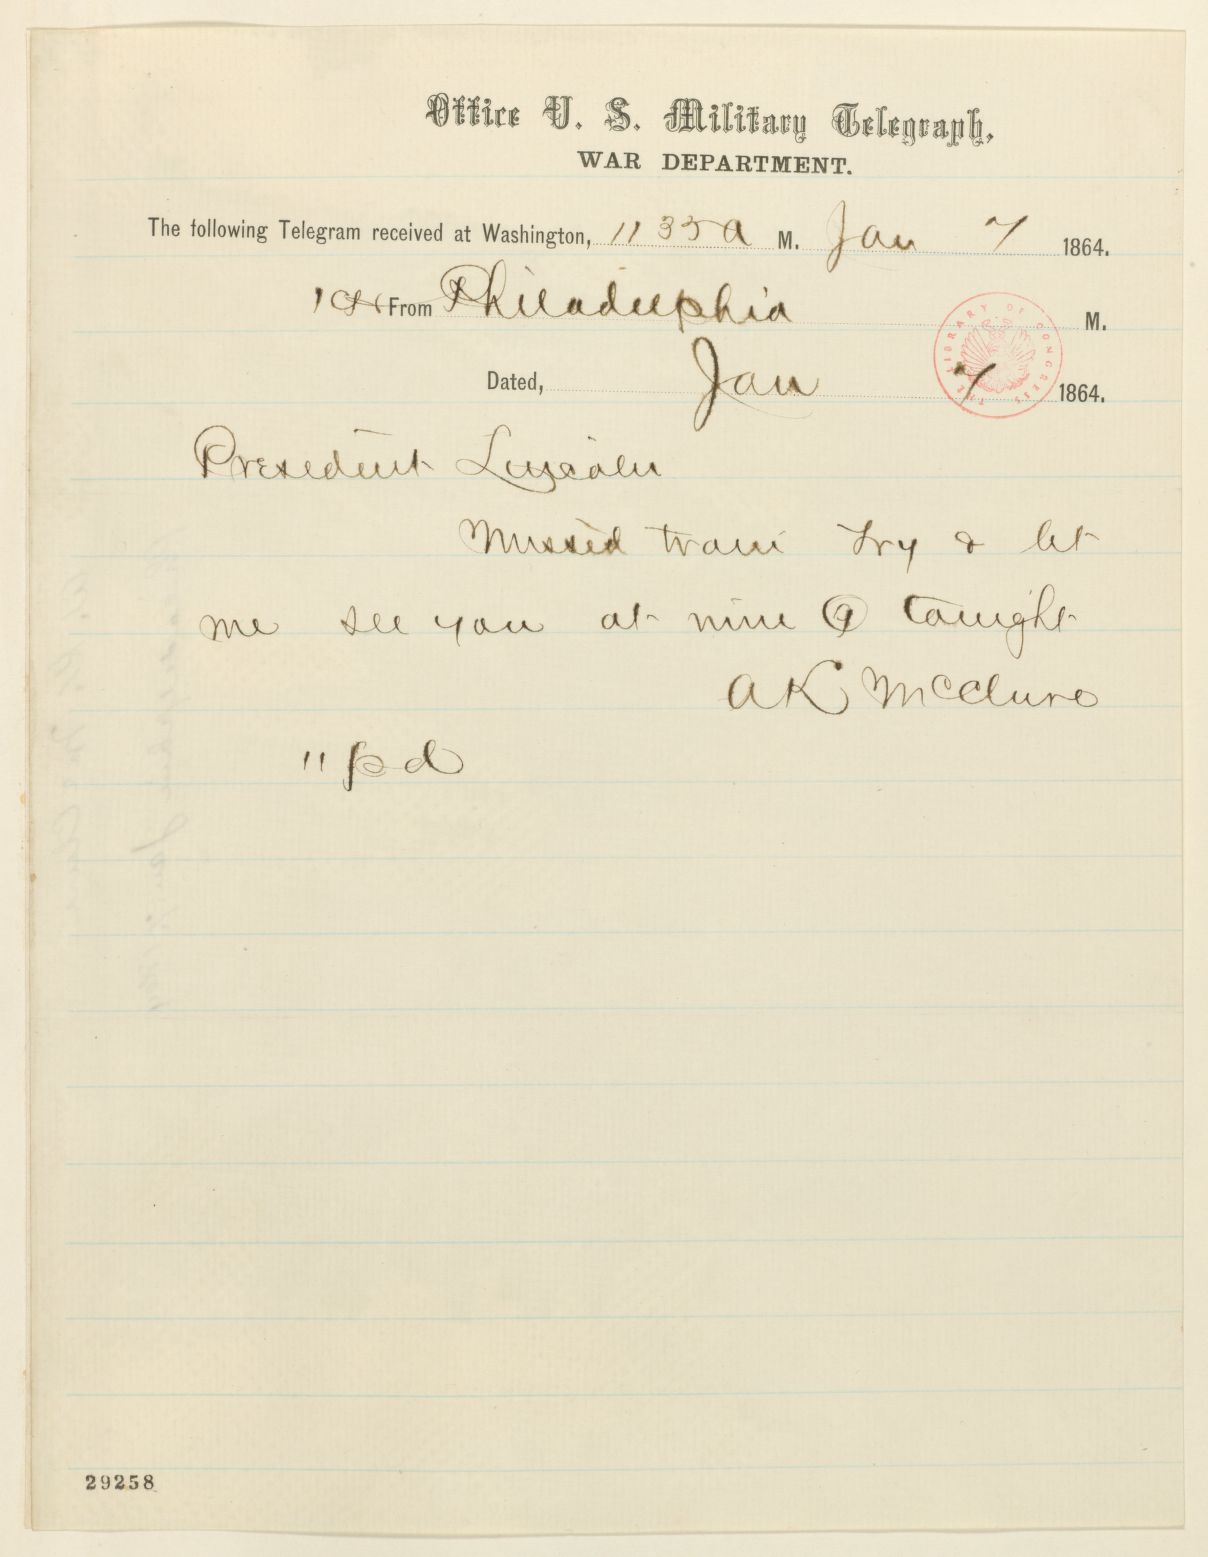 Office U. S. Military Telegraph,
WAR DEPARTMENT.
The following Telegram received at Washington, 11 35 A M. Jan 7 1864.
From Philadelphia M.
Dated, Jan 7 1864.
THE LIBRARY OF CONGRESS
President Lincoln
Missed train try & let
me see you at nine (9) tonight
AK McClure
11 pd
29258